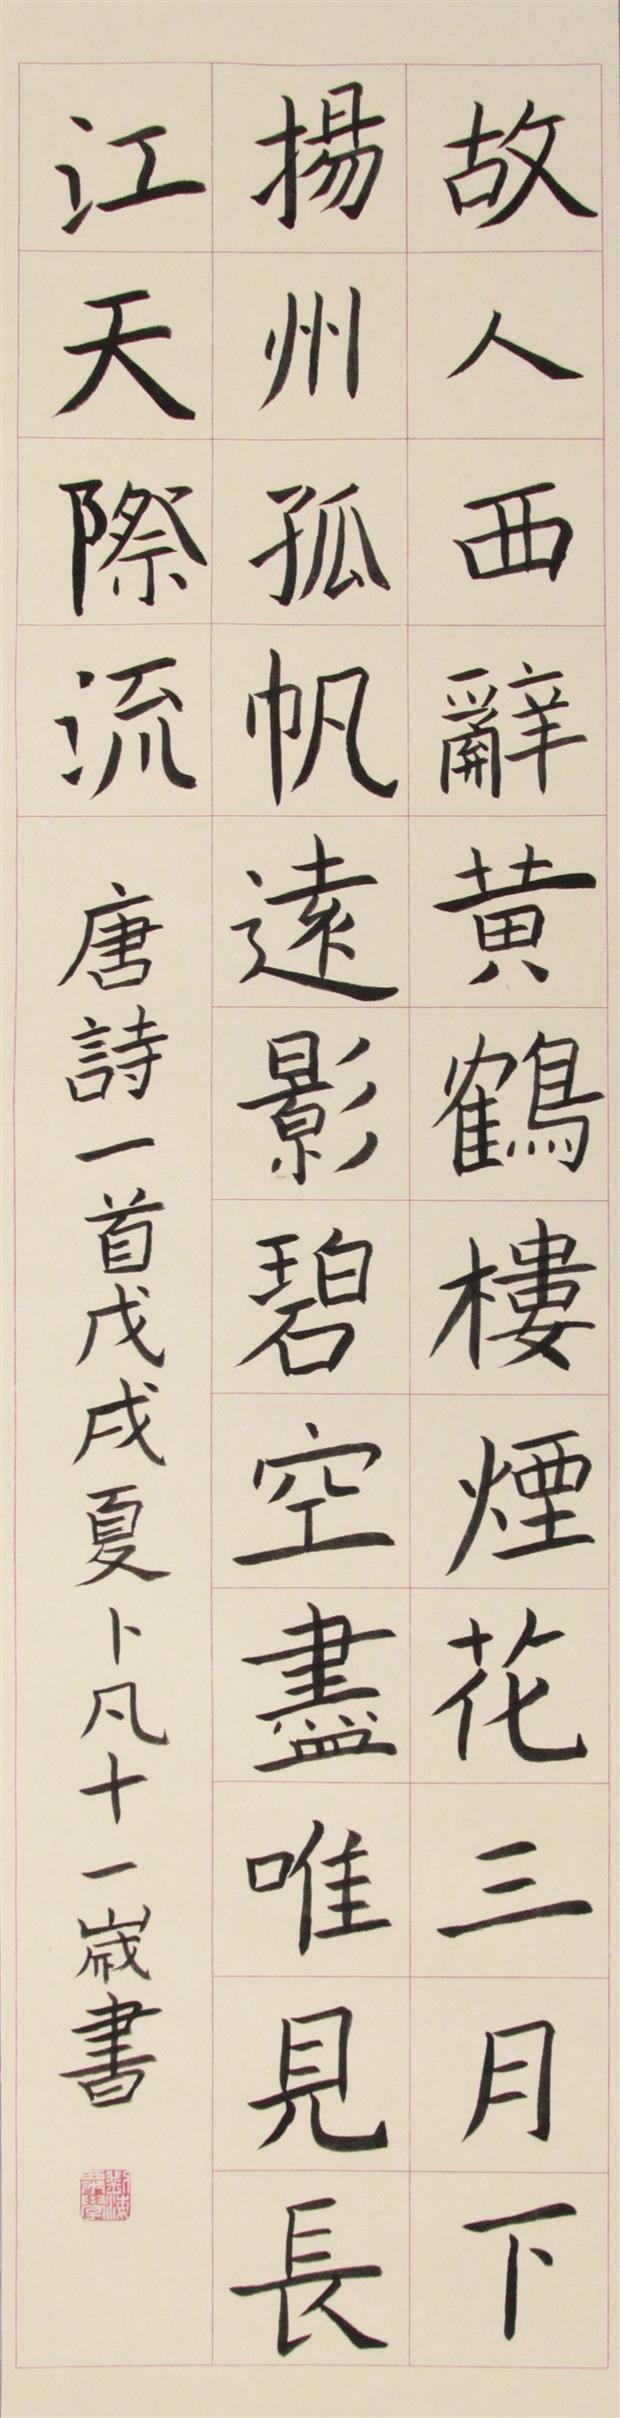 故人西辭黄鶴樓煙花三月下
揚州孤帆遠影碧空盡唯見長
江天際流
唐詩一首戊戌夏卜凡十一歲書